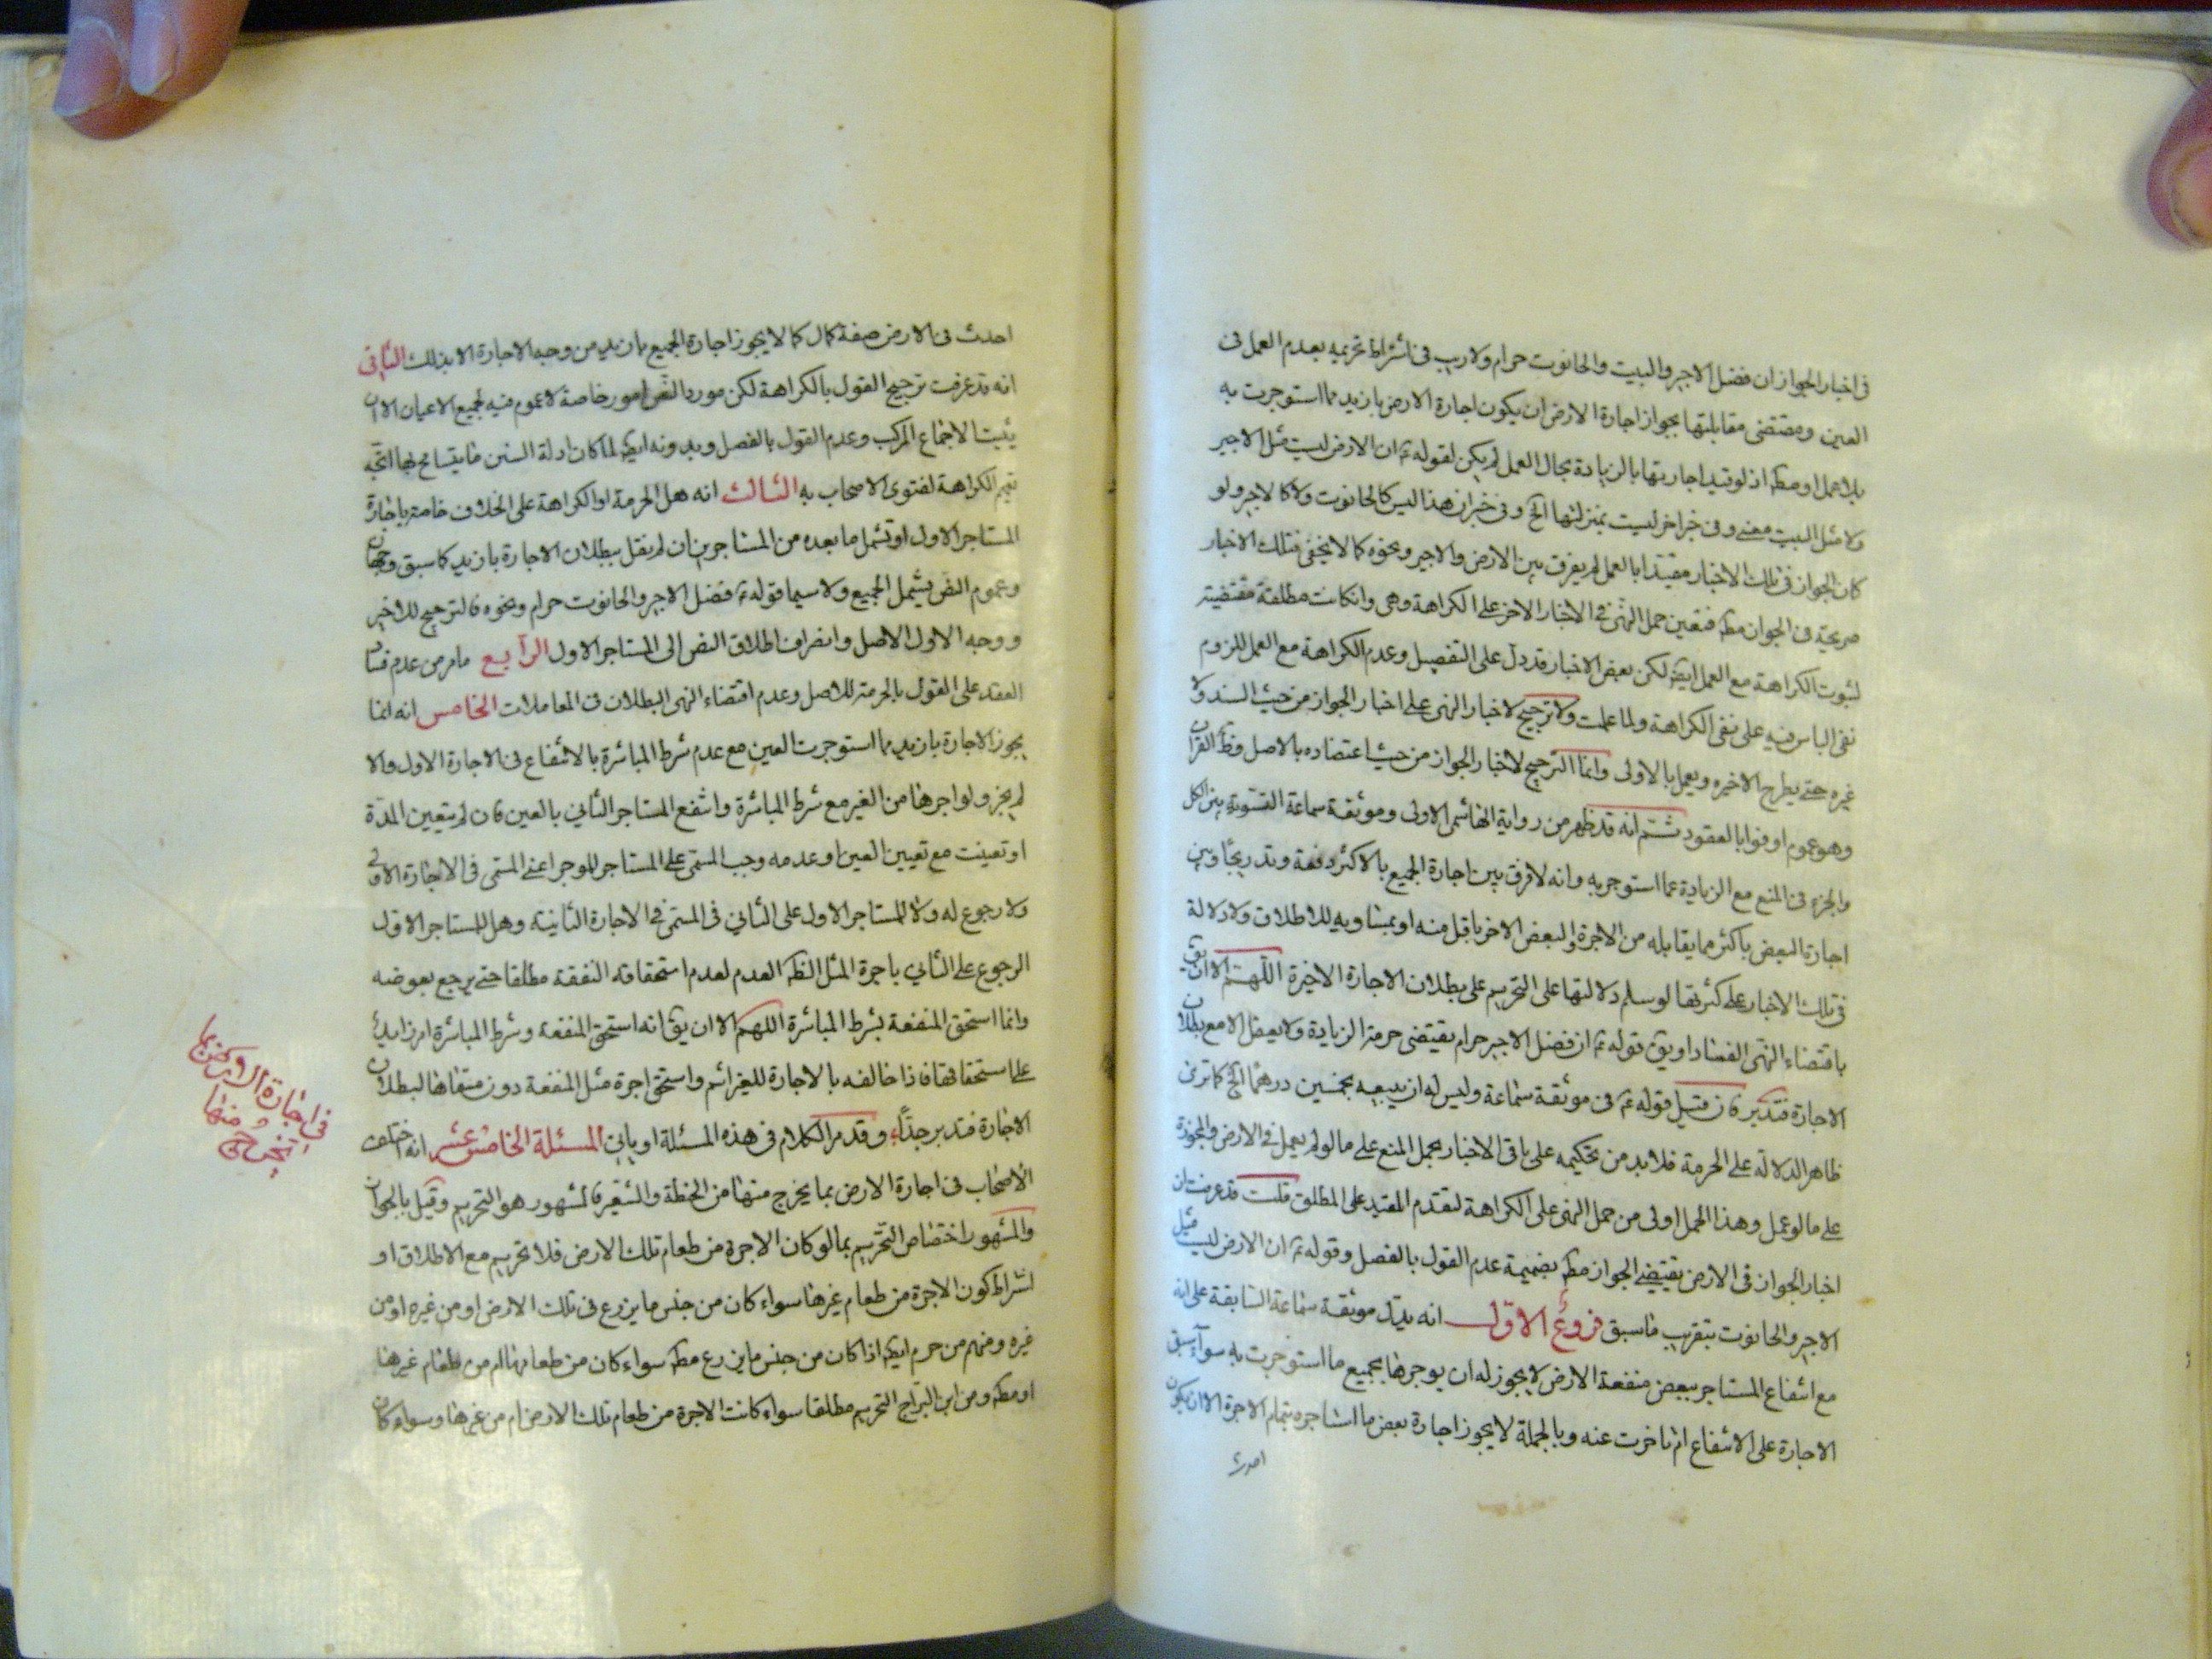 فى اخبار الجواز ان فضل الاجير والبيت والحانوت حرام ولا ريب فى اشتراط تحريمه بعدم العمل فى
العين ومقتضى مقابلتها بجواز اجارة الارض ان يكون اجارة الارض بازيد مما استوجرت به
بلا عمل او مط اذ لو قيد اجارتها بالزيادة بحال العمل لم يكن لقوله ع ان الارض ليست مثل الاجير
ولا مثل البيت معنى وفى خبر اخر ليست بمنزلتها الخ وفى خبر ان هذا ليس كالحانوت ولا كالاجير ولو
كان الجواز فى تلك الاخبار مقيدا بالعمل لم يفرق بين الارض والاجير ونحوه كما لا يخفى فتلك الاخبار
صريحة فى الجواز مط فتعين حمل النهى فى الاخبار الاخر على الكراهة وهى وان كانت مطلقة مقتضية
لثبوت الكراهة مع العمل ايض لكن بعض الاخبار قد دل على التفصيل وعدم الكراهة مع العمل للزوم
نفى الباس فيه على نفى الكراهة ولما علمت ولا ترجيح لاخبار النهى على اخبار الجواز من حيث السند ولا
غيره حتى يطرح الاخيره ويعمل بالاولى وانما الترجيح لاخبار الجواز من حيث اعتضاده بالاصل وظ القران
وهو عموم اوفوا بالعقود ثم انه قد ظهر من رواية الهاشمى الاولى وموثقة سماعة التسوية بين الكل
والجزء فى المنع مع الزيادة عما استوجر به وانه لا فرق بين اجارة الجميع بالاكثر دفعة وتدريجا وبين
اجارة البعض باكثر مما يقابله من الاجرة والبعض الاخر باقل منه او بمساويه للاطلاق ولا دلالة
فى تلك الاخبار على كثرتها لو سلم دلالتها على التحريم على بطلان الاجارة الاخيرة اللهم الا ان يق
باقتضاء النهى الفساد او يق قوله ع ان فضل الاجير حرام يقتضى حرمة الزيادة ولا يعقل الا مع بطلان
الاجارة فتدبر فان قيل قوله ع فى موثقة سماعة وليس له ان يبيعه بخمسين درهما الخ كما ترى
ظاهر الدلالة على الحرمة فلا بد من تحكيمه على باقى الاخبار بحمل المنع على ما لو لم يعمل فى الارض والمجوزة
على ما لو عمل وهذا الحمل اولى من حمل النهى على الكراهة لتقدم المقيد على المطلق قلت قد عرفت ان
اخبار الجواز فى الارض يقتضى الجواز مط بضميمة عدم القول بالفصل وقوله ع ان الارض ليست مثل
الاجير والحانوت بتقريب ما سبق فروع الاول انه يدل موثقة سماعة السابقة على انه
مع انتفاع المستاجر ببعض منفعة الارض لا يجوز له ان يوجرها بجميع ما استوجرت به سواء سبق
الاجارة على الانتفاع ام تاخرت عنه وبالجملة لا يجوز اجارة بعض ما استاجره بتمام الاجرة الا ان يكون
احدث
احدث فى الارض صفة كمال كما لا يجوز اجارة الجميع بازيد من وجه الاجارة الا بذلك الثانى
انه قد عرفت ترجيح القول بالكراهة لكن مورد النص امور خاصة لا عموم فيه لجميع الاعيان الا ان
يثبت الاجماع المركب وعدم القول بالفصل وبدونه ايض لما كان ادلة السنن مما يتسامح بها اتجه
تعميم الكراهة لفتوى الاصحاب به الثالث انه هل الحرمة او الكراهة على الخلاف خاصة باجارة
المستاجر الاول او تشمل ما بعده من المستاجرين ان لم نقل ببطلان الاجارة بازيد كما سبق وجهان
وعموم النص يشمل الجميع ولا سيما قوله ع فضل الاجير والحانوت حرام ونحوه فالترجيح للاخير
ووجه الاول الاصل وانصراف اطلاق النص الى المستاجر الاول الرابع ما مر من عدم فساد
العقد على القول بالحرمة للاصل وعدم اقتضاء النهى البطلان فى المعاملات الخامس انه انما
يجوز الاجارة بازيد مما استوجرت العين مع عدم شرط المباشرة بالانتفاع فى الاجارة الاول والا
لم يجز ولو اجرها من الغير مع شرط المباشرة وانتفع المستاجر الثانى بالعين فان لم يتعين المدة
او تعينت مع تعيين العين او عدمه وجب المسمى على المستاجر للموجر اعنى المسمى فى الاجارة الاولى
ولا رجوع له ولا للمستاجر الاول على الثانى فى المسمى فى الاجارة الثانية وهل للمستاجر الاول
الرجوع على الثانى باجرة المثل الظ العدم لعدم استحقاقه النفقة مطلقا حتى يرجع بعوضه
وانما استحق المنفعة بشرط المباشرة اللهم الا ان يق انه استحق المنفعة وشرط المباشرة امر زايد
على استحقاقها فاذا خالفه بالاجارة للغير اثم واستحق اجرة مثل المنفعة دون مسماها لبطلان
الاجارة فتدبر جدا وقد مر الكلام فى هذه المسئلة او ياتى المسئلة الخامس عشر انه اختلف
الاصحاب فى اجارة الارض بما يخرج منها من الحنطة والشعير فالمشهور هو التحريم وقيل بالجواز
والمشهور اختصاص التحريم بما لو كان الاجرة من طعام تلك الارض فلا تحريم مع الاطلاق او
اشتراط كون الاجرة من طعام غيرها سواء كان من جنس ما يزرع فى تلك الارض او من غيره او من
غيره ومنهم من حرم ايض اذا كان من جنس ما يزرع مط سواء كان من طعامها ام من طعام غيرها
او مط ومن ابن البراج التحريم مطلقا سواء كانت الاجرة من طعام تلك الارض ام من غيرها وسواء كان
فى اجارة الارض بما
يخرج منها